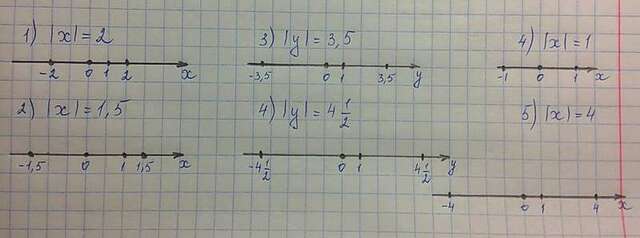 1) |x| = 2
-2 0 1 2 x
2) |x| = 1,5
-1,5 0 1 1,5 x
3) |y| = 3,5
-3,5 0 1 3,5 y
4) |y| = 4 1/2
-4 1/2 0 1 4 1/2 y
4) |x| = 1
-1 0 1 x
5) |x| = 4
-4 0 1 4 x